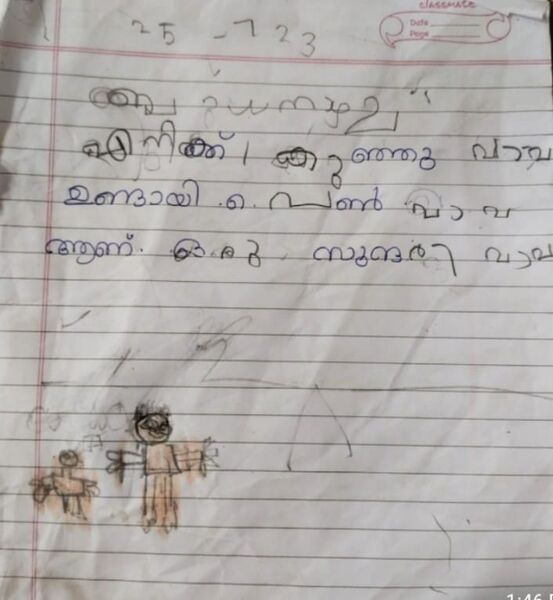 classmate
Date
Page
25 -7 23
ബുധനാഴ്ച
എനിക്ക് കുഞ്ഞു വാവ
ഉണ്ടായി .െപൺ വാവ
ആണ്. ഒരു സുന്ദരി വാവ
1:46